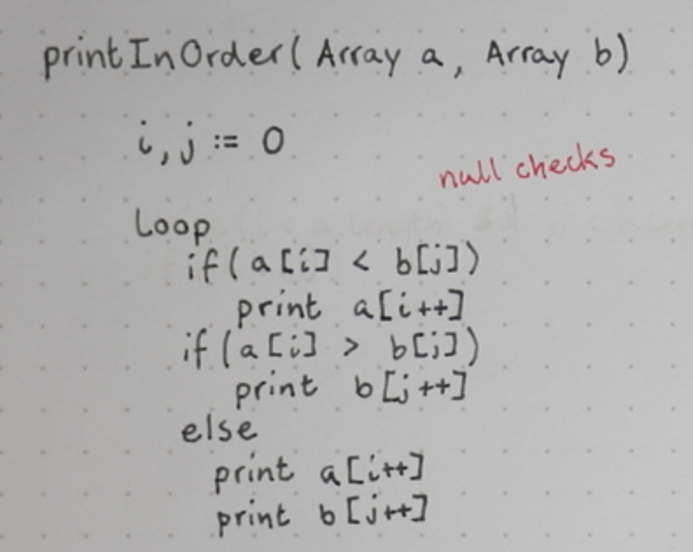 printInOrder( Array a, Array b)
i, j := 0
null checks
Loop
if( a[i] < b[j])
print a[i++]
if(a[i] > b[j])
print b[j++]
else
print a[i++]
print b[j++]